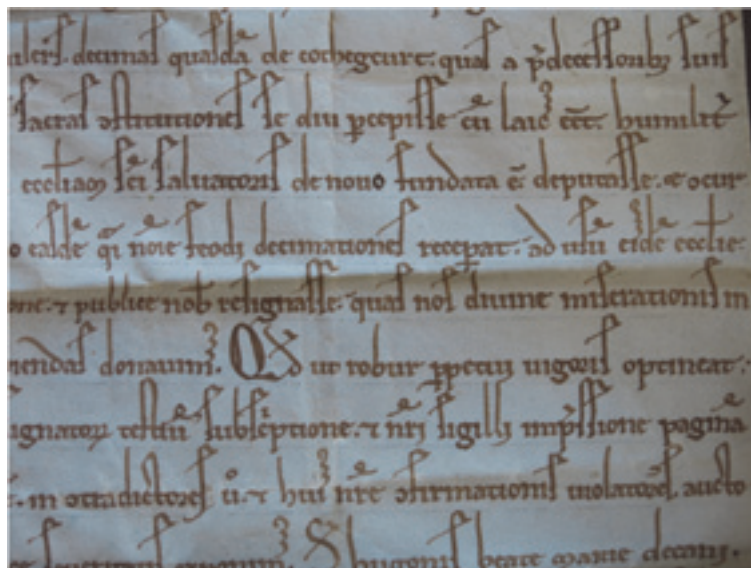 decimas quasdā de cochegeure. quas a p̄decessorib; suis
sacras ɔstitutiones se diu ꝑcepisse cū laic̾ eēt. humilit̾
eccl̄iam sc̄i saluatoris de nouo fundata ē deputasse. et
q̄ noīe feodi decimationes recepat. ad usū eccl̄ie.
one. ⁊ publice nob̄ resignasse. quas nos diuine miserationis in
donauim̾. Qd ut robur ꝑpetui uigoris optineat.
testiū subsc̄ptione. ⁊ nr̄i sigilli imp̄ssione paginā
in ɔtradictores ū. ⁊ hui̾ nr̄e ɔfirmationis uiolatores. aucto
S hugonis beate marie decani.